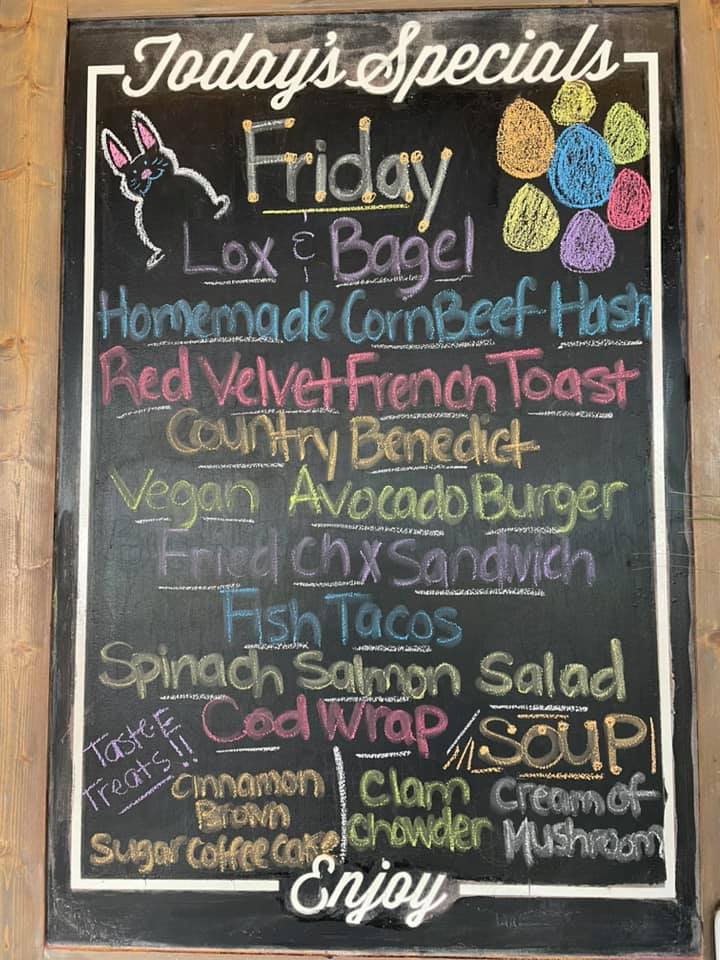 Today's Specials
Friday
Lox & Bagel
Homemade CornBeef Hash
Red Velvet French Toast
Country Benedict
Vegan Avocado Burger
Fried Chx Sandwich
Fish Tacos
Spinach Salmon Salad
Cod Wrap
TasteE
Treats!!
Cinnamon
Brown
Sugar Coffee Cake
SOUP
Clam
Chowder
Cream of
Mushroom
Enjoy